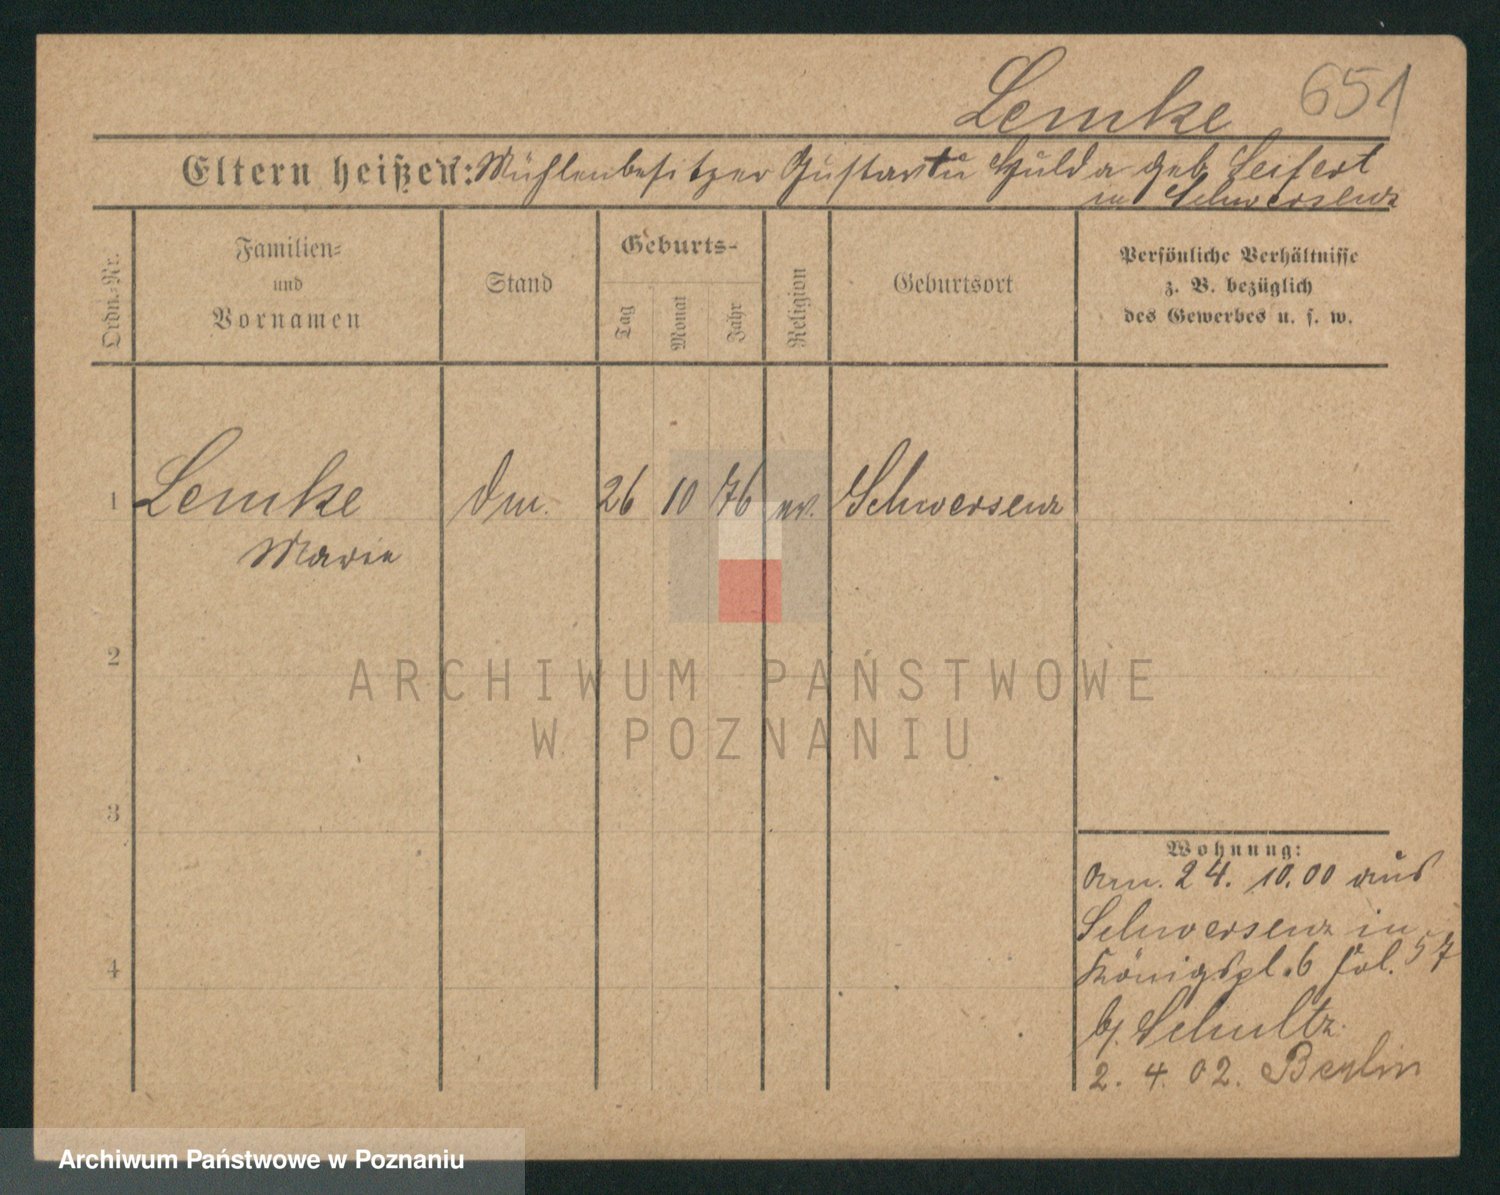 Lemke 651
Eltern heißen: Mühlenbesitzer Gustav u Hulda geb Seifert
in Schwersenz
Ordn.-Nr.
Familien-
und
Vornamen
Stand
Geburts-
Tag
Monat
Jahr
Religion
Geburtsort
Persönliche Verhältnisse
z. B. bezüglich
des Gewerbes u. s. w.
1 Lemke 26 10 76 ev. Schwersenz
Marie
2
ARCHIWUM PAŃSTWOWE
W POZNANIU
3
4
Wohnung:
Am. 24. 10.00 aus
Schwersenz in
Königspl. 6 Fol. 57
b/. Schultz
2. 4. 02. Berlin
Archiwum Państwowe w Poznaniu